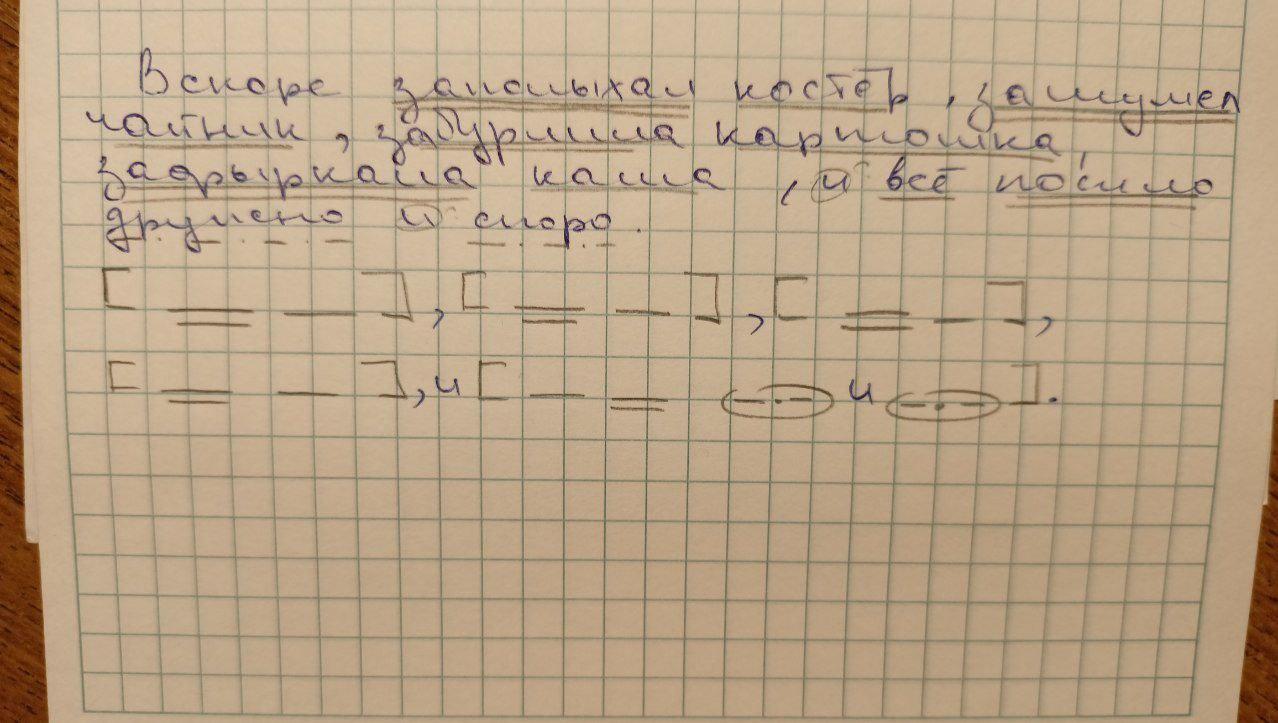 Вскоре заполыхал костёр, зашумел
чайник, забурлила картошка,
зафыркала каша, и всё пошло
дружно и споро.
[ ], [ ], [ ],
[ ], и [ и ].